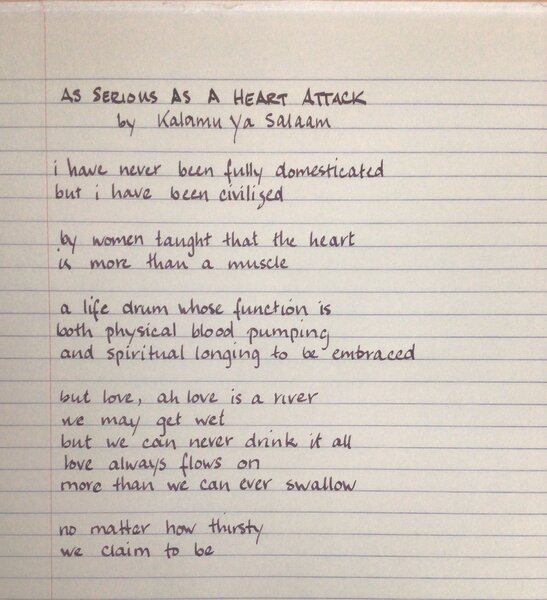 AS SERIOUS AS A HEART ATTACK
by Kalamu Ya Salaam
i have never been fully domesticated
but i have been civilized
by women taught that the heart
is more than a muscle
a life drum whose function is
both physical blood pumping
and spiritual longing to be embraced
but love, ah love is a river
we may get wet
but we can never drink it all
love always flows on
more than we can ever swallow
no matter how thirsty
we claim to be